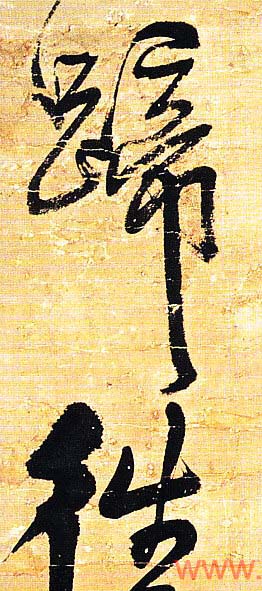 歸
往
www.